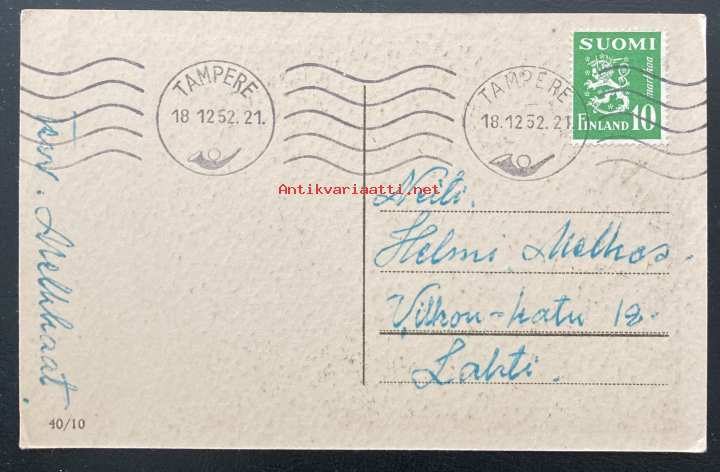 TAMPERE
18.12.52.21.
TAMPERE
18.12.52.21
SUOMI
markkaa
FINLAND 10
Antikvariaatti.net
Neiti.
Helmi Melkas.
Vilkon-katu 12.
Lahti.
terv. Melkkaat.
40/10